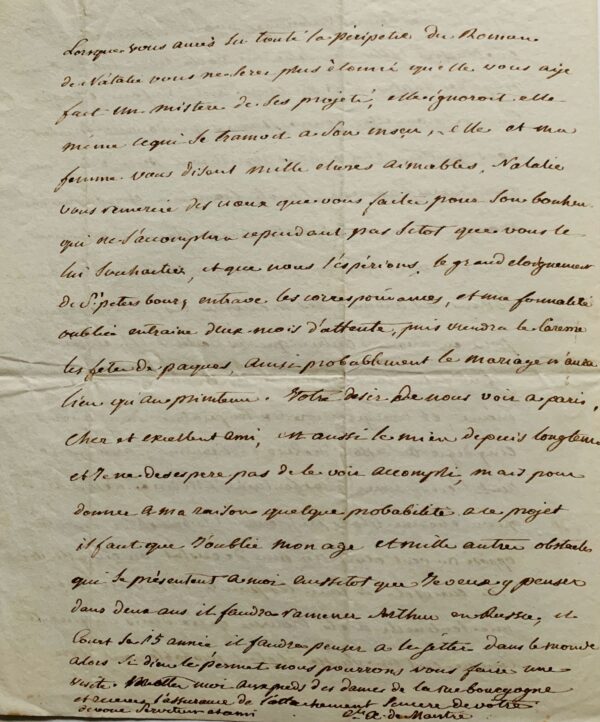 Lorsque vous aurés su toute la péripetie du Roman
de Natalie vous ne serés plus étonné qu'elle vous aye
fait un mistere de ses projets, elle ignoroit elle
même ce qui se tramoit a son insçu, Elle et ma
femme vous disent mille choses aimables, Natalie
vous remercie des vœux que vous faites pour son bonheur
qui ne s'accomplira cependant pas sitot que vous le
lui souhaitiés, et que nous l'espérions. le grand eloignement
de St. petersbourg entrave les correspondances, et une formalité
oubliée entraine deux mois d'attente, puis viendra le Careme
les fetes de paques, ainsi probablement le mariage n'aura
lieu qu'au printems. Votre desir de nous voir a paris,
cher et excellent ami, est aussi le mien depuis longtems
et Je ne desespere pas de le voir accompli, mais pour
donner a ma raison quelque probabilité a ce projet
il faut que J'oublie mon age et mille autres obstacles
qui se présentent a moi aussitot que Je veux y penser
dans deux ans il faudra ramener Arthur en Russie, il
court sa 15 année il faudra penser a le jetter dans le monde
alors si dieu le permet nous pourrons vous faire une
visite. Mettés moi aux pieds des dames de la rue bourgogne
et recevés l'assurance de l'attachement sincere de votre
devoué serviteur et ami Cte. X. de Maistre